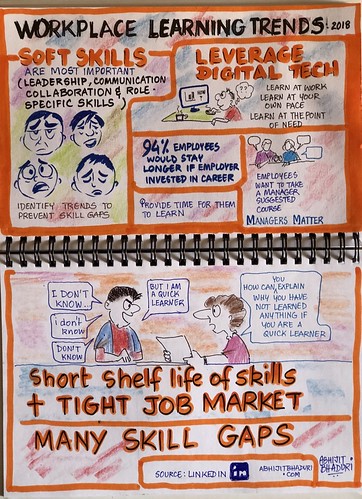 WORKPLACE LEARNING TRENDS-2018
SOFT SKILLS
ARE MOST IMPORTANT
(LEADERSHIP, COMMUNICATION
COLLABORATION & ROLE-
SPECIFIC SKILLS)
IDENTIFY TRENDS TO
PREVENT SKILL GAPS
LEVERAGE
DIGITAL TECH
LEARN AT WORK
LEARN AT YOUR
OWN PACE
LEARN AT THE POINT
OF NEED
94% EMPLOYEES
WOULD STAY
LONGER IF EMPLOYER
INVESTED IN CAREER
PROVIDE TIME FOR THEM
TO LEARN
EMPLOYEES
WANT TO TAKE
A MANAGER
SUGGESTED
COURSE
MANAGERS MATTER
I DON'T
KNOW...
i don't
know
DON'T
KNOW
BUT I AM
A QUICK
LEARNER
YOU
HOW CAN, EXPLAIN
WHY YOU HAVE
NOT LEARNED
ANYTHING IF
YOU ARE A
QUICK LEARNER
Short Shelf life of skills
+ TIGHT JOB MARKET
MANY SKILL GAPS
SOURCE: LINKEDIN in
ABHIJITBHADURI
.COM
ABHIJIT
BHADURI